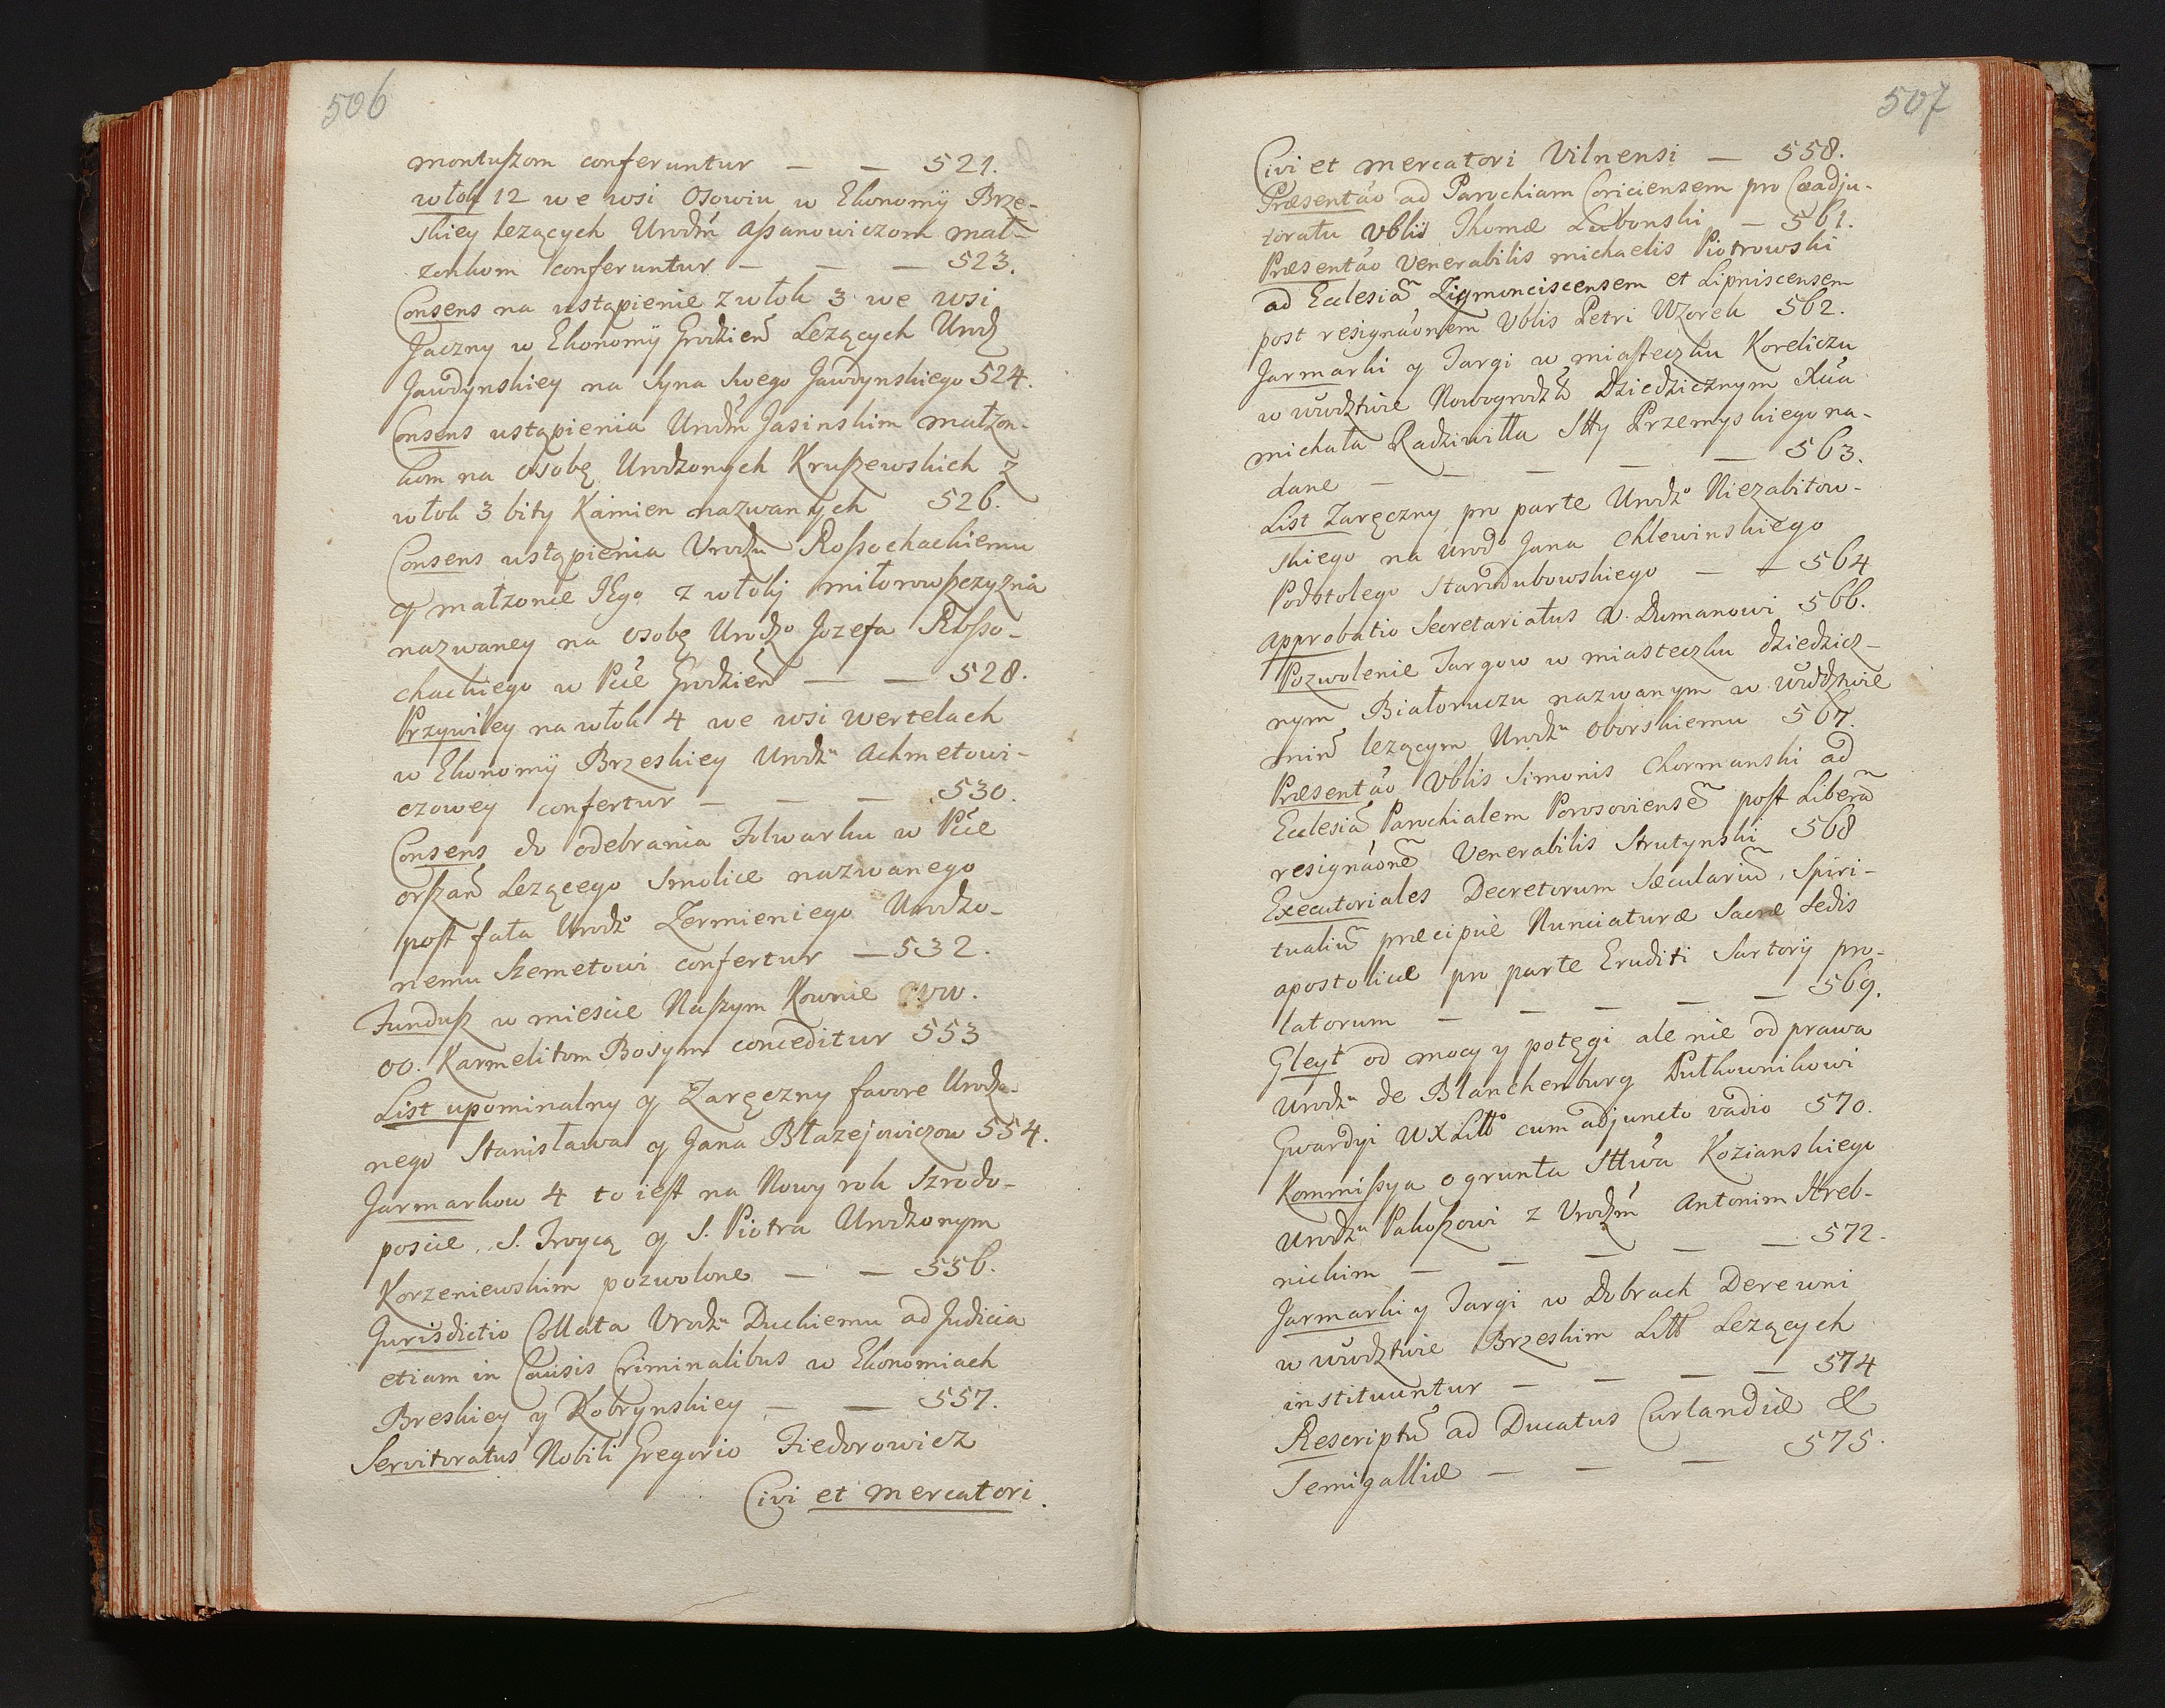 506
montuszom conferuntur — — 521.
włok 12 we wsi Osowiu w Ekonomÿ Brze-
skiey lezących Urodźm Assanowiczom mał-
zonkom conferuntur — — — 523.
Consens na ustąpienie z włok 3 we wsi
Jaczny w Ekonomÿ Grodzień Lezących Urodz
Jawdynskiey na Syna Swego Jawdynskiego 524.
Consens ustąpienia Urodźm Jasinskim małzon-
kom na osobę Urodzonych Kruszewskich z
włok 3 bity Kamien nazwanych 526.
Consens ustąpienia Urodzu Rossochackiemu
y małzonce JEgo z włoki miłorowszczyzna
nazwaney na osobę Urodzo Jozefa Rosso-
chackiego w Pcie Grodzień — — 528.
Przywiley na włok 4 we wsi wertelach
w Ekonomÿ Brzeskiey Urodzu Achmetowi-
czowey confertur — — — 530.
Consens do odebrania Folwarku w Pcie
orszań Lezącego Smolice nazwanego
post fata Urodzo Zermieniego Urodzo-
nemu Szemetowi confertur — 532.
Fundusz w miescie Naszym Kownie WW.
OO. Karmelitom Bosym conceditur 553
List upominalny y Zaręczny favore Urodzo-
nego Stanisława y Jana Błazejowiczow 554.
Jarmarkow 4 to iest na Nowy rok Szrodo-
poscie, S. Troycą y S. Piotra Urodzonym
Korzeniewskim pozwolone — — 556.
Jurisdictio Collata Urodzu Duckiemu ad Judicia
etiam in Causis Criminalibus w Ekonomiach
Breskiey y Kobrynskiey — — 557.
Servitoratus Nobili Gregorio Fiedorowicz
Civi et Mercatori.
507
Civi et Mercatori Vilnensi — 558.
Præsentáo ad Parochiam Coriciensem pro Coadju-
toratu Vblis Thomæ Lubonski — 561.
Præsentáo Venerabilis Michaelis Piotrowski
ad Ecclesiam̃ Zigmunciscensem et Lipniscensem
post resignáonem Vblis Petri Wzorek 562.
Jarmarki y Targi w miasteczku Koreliczu
w wwdztwie Nowogrodzk Dziedzicznym Xcia
michała Radziwiłła Stty Przemyskiego na-
dane — — — — 563.
List Zaręczny pro parte Urodzo Niezabitow-
skiego na Urodo Jana Chlewinskiego
Podstolego Starodubowskiego — — 564
Approbatio Secretariatus Ur. Dumanowi 566.
Pozwolenie Targow w miasteczku dziedzicz-
nym Białoruczu nazwanym w wwdztwie
miń lezącym Urodzu Oborskiemu 567.
Præsentáo Vblis Simonis Chormanski ad
Ecclesiã Parochialem Porosoviensẽ post Liberã
resignáonẽ Venerabilis Strutynski 568
Executoriales Decretorum Sæculariũ, Spiri-
tualiũ præcipuè Nunciaturæ Sacræ Sedis
apostolicæ pro parte Eruditi Sartorÿ pro-
latorum — — — — — 569.
Gleyt od mocy y potęgi ale nie od prawa
Urodzu de Blanchenburg Pułkownikowi
Gwardyi WXLitto cum adjuncto vadio 570.
Kommissya o grunta Sttwa Kozianskiego
Urodzu Pakoszowi z Urodźm Antonim Streb-
nickim — — — — — 572.
Jarmarki y Targi w Dobrach Derewni
w wwdztwie Brzeskim Litt Lezących
instituuntur — — — — 574
Rescriptũ ad Ducatus Curlandiæ &
Semigalliæ — — — 575.